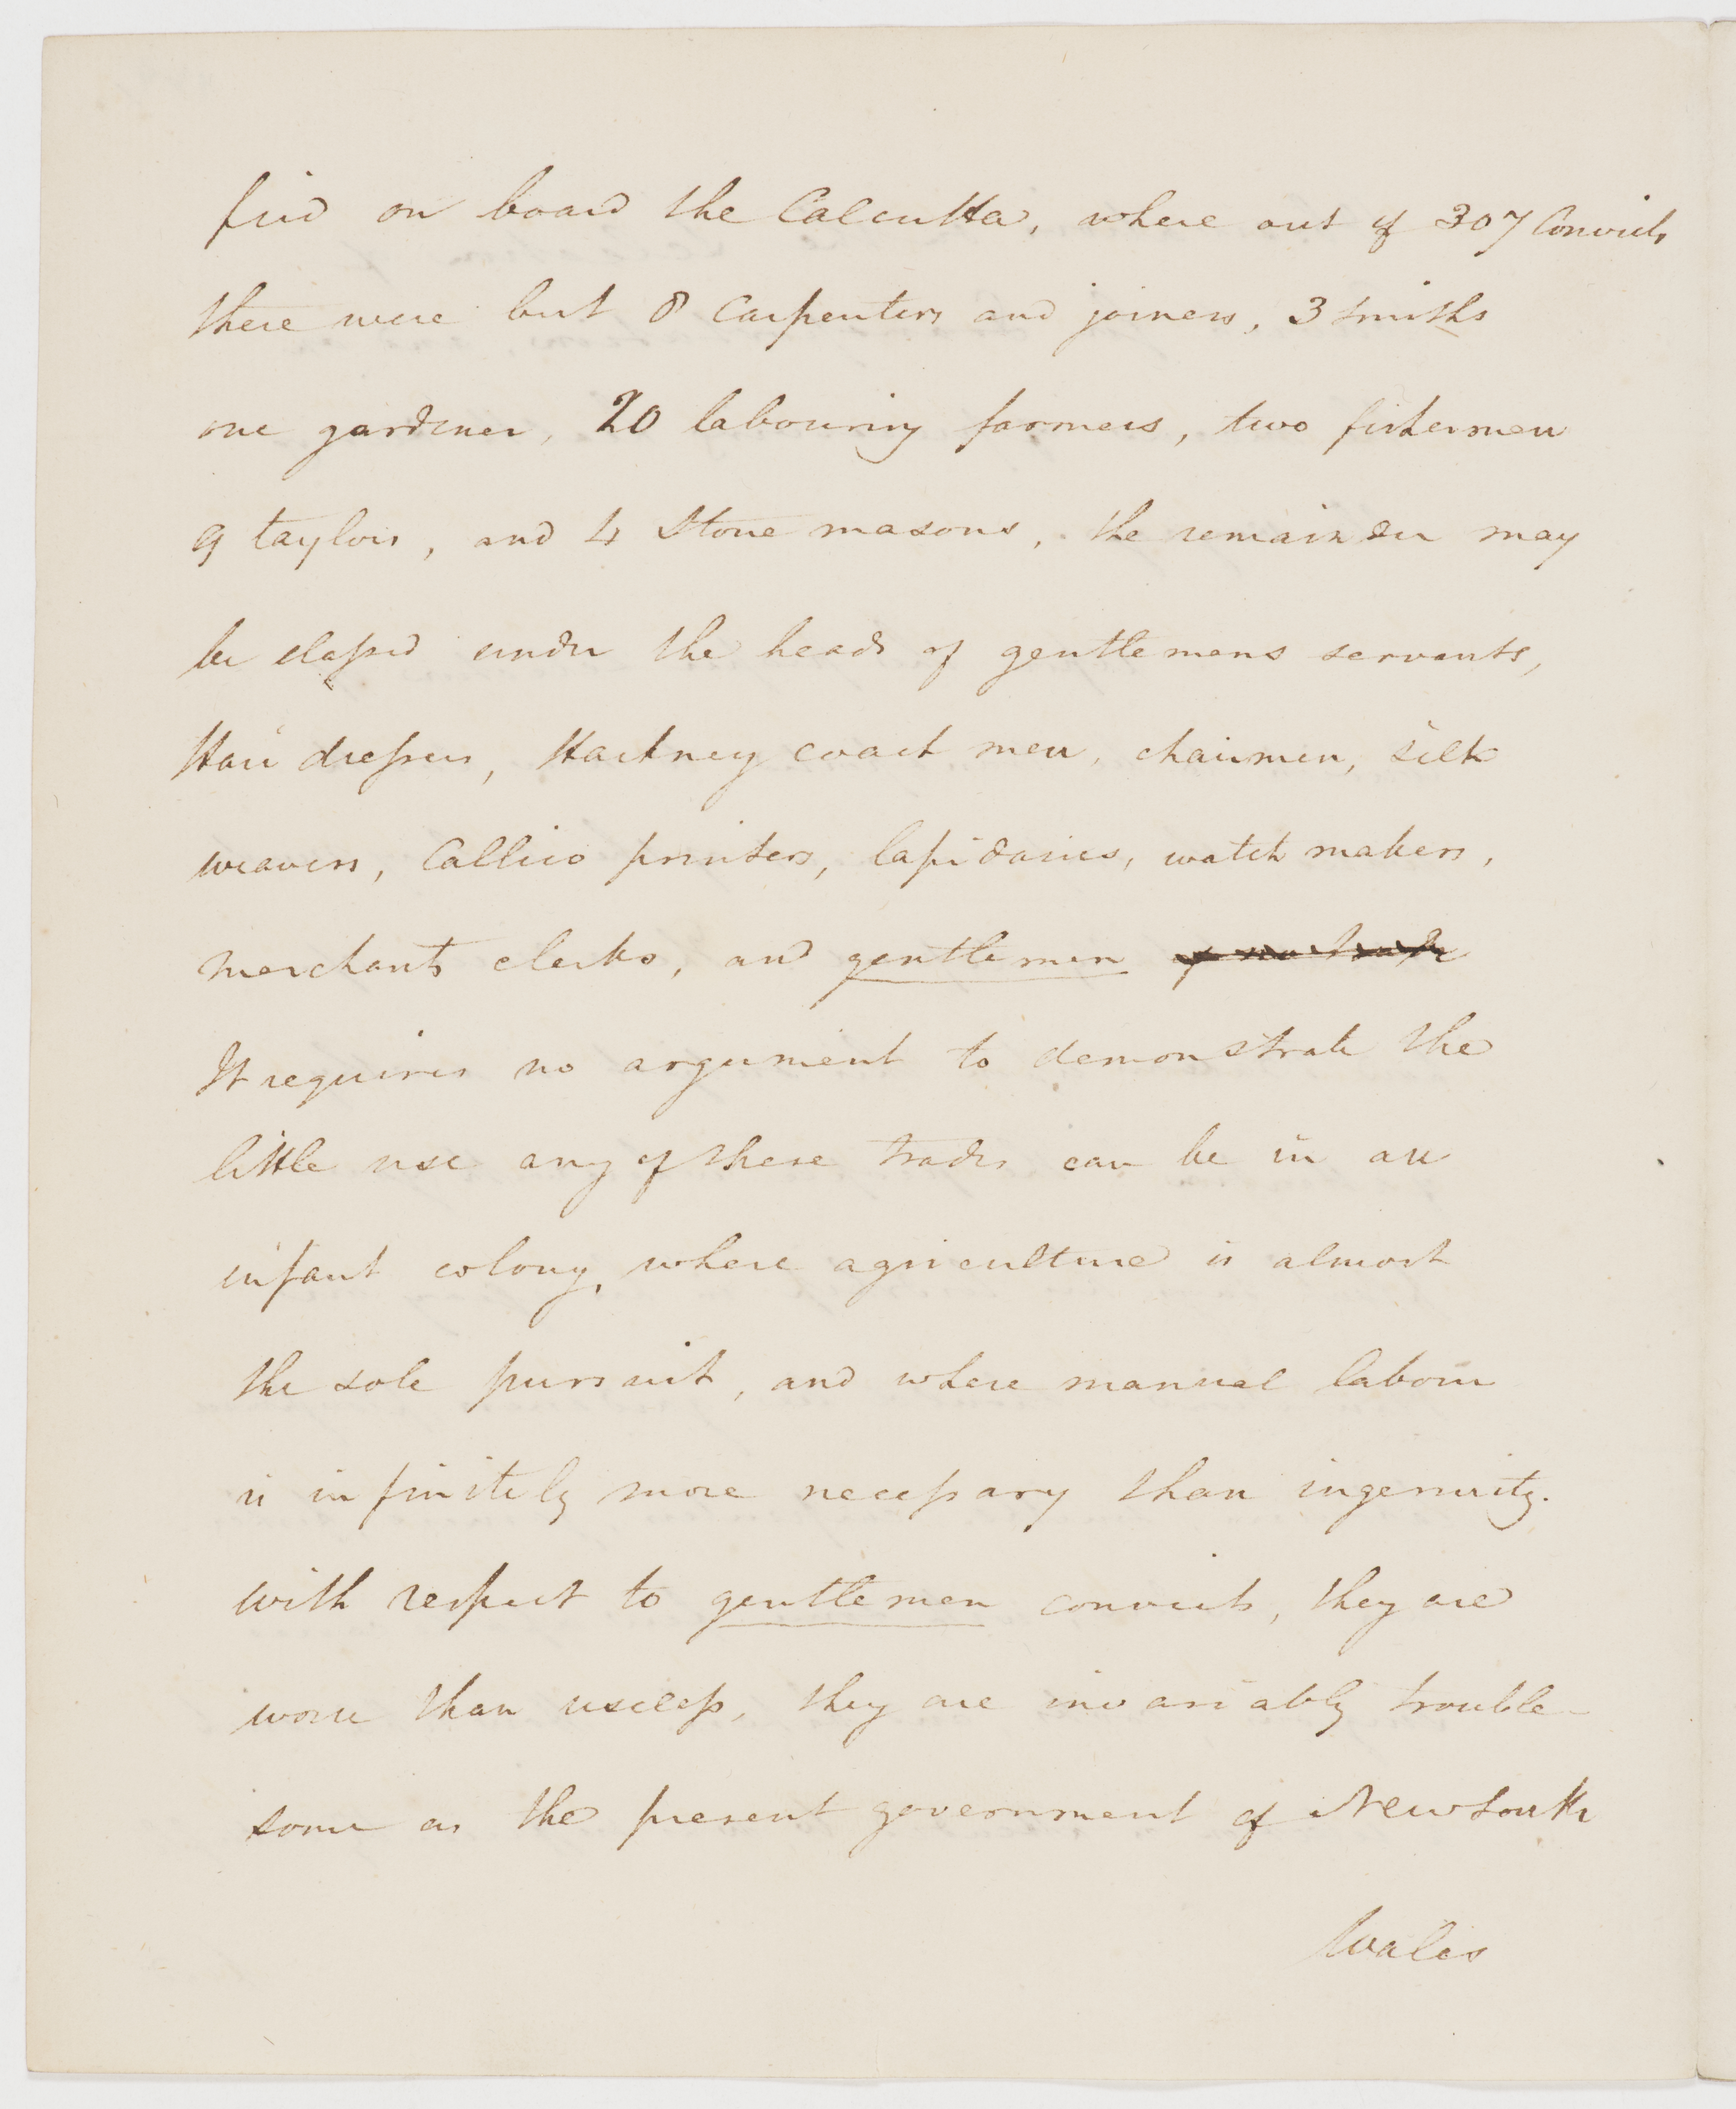 find on board the Calcutta, where out of 307 Convicts
there were but 8 Carpenters and joiners, 3 smiths
one gardener, 20 labouring farmers, two fishermen
9 taylors, and 4 Stone masons, the remainder may
be classed under the heads of gentlemens servants,
Hair dressers, Hackney coach men, chairmen, silk
weavers, Callico printers, lapidaries, watch makers,
merchants clerks, and gentlemen of no trade
It requires no argument to demonstrate the
little use any of these trades can be in an
infant colony, where agriculture is almost
the sole pursuit, and where manual labour
is infinitely more necessary than ingenuity.
With respect to gentlemen convicts, they are
worse than useless, they are invariably trouble-
some as the present government of New South
Wales